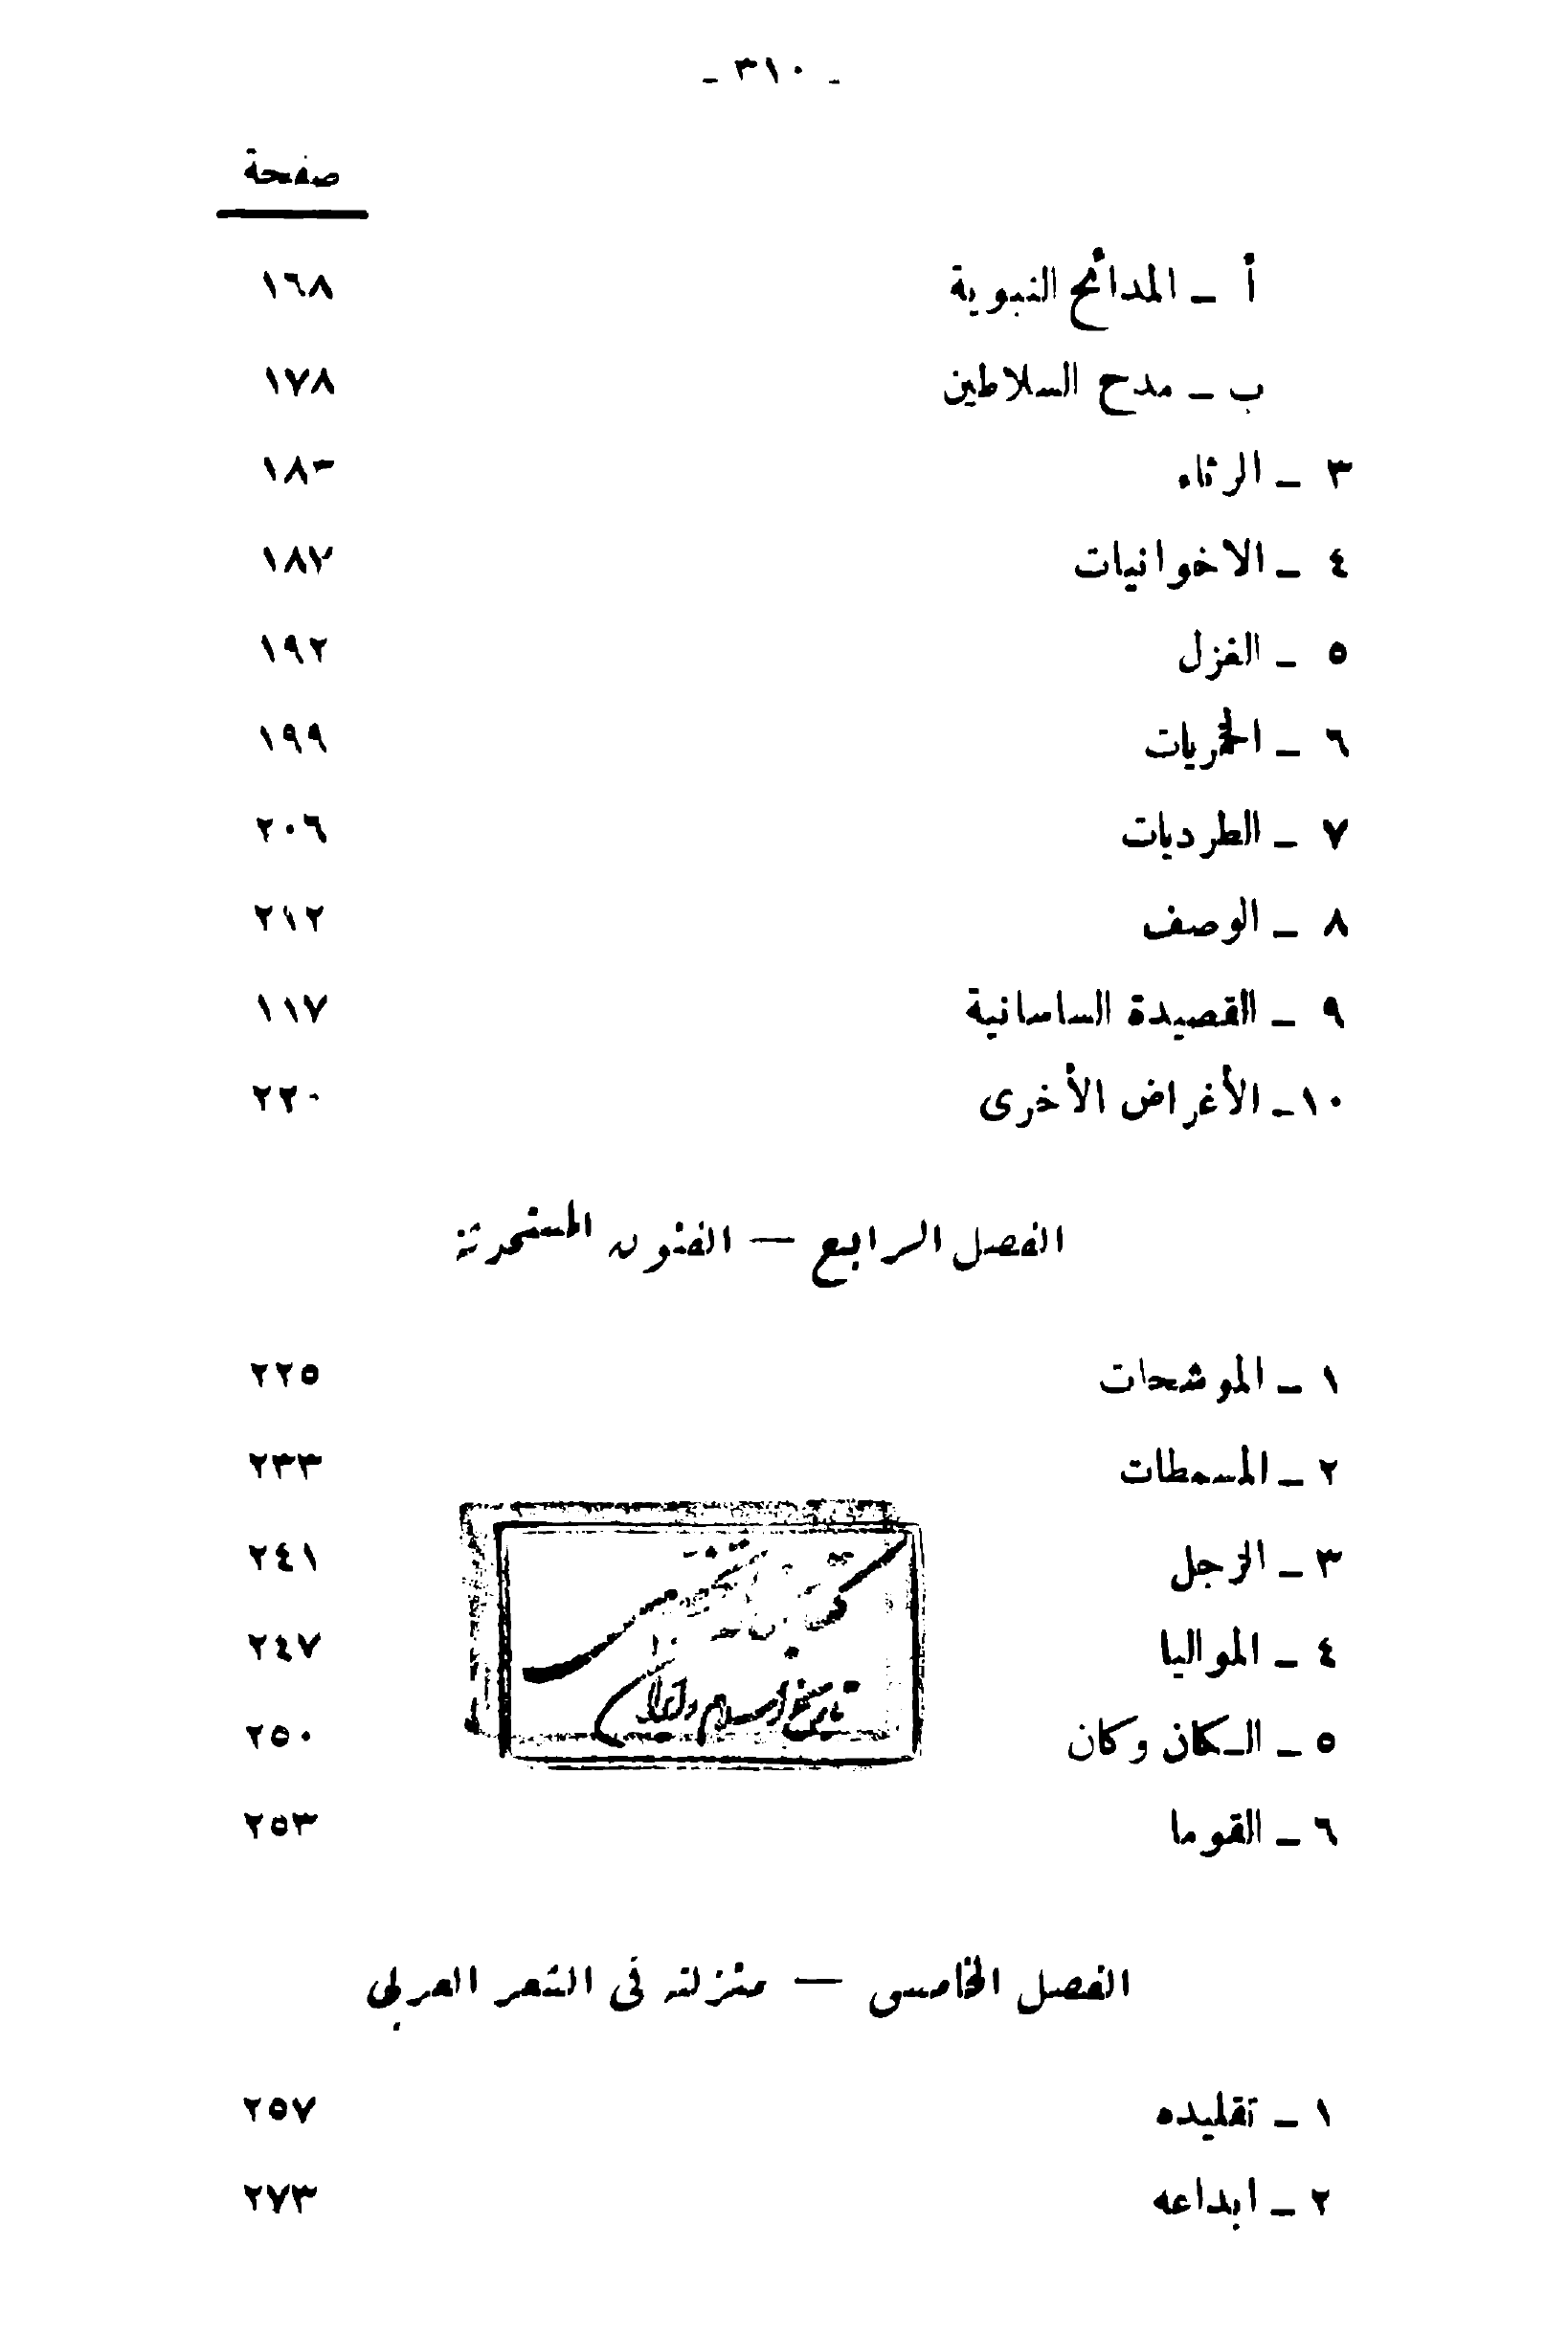 - ٣١٠ -
صفحة
أ - المدائح النبوية ١٦٨
ب - مدح السلاطين ١٧٨
٣ - الرثاء ١٨٣
٤ - الاخوانيات ١٨٧
٥ - الغزل ١٩٢
٦ - الخمريات ١٩٩
٧ - الطرديات ٢٠٦
٨ - الوصف ٢١٢
٩ - القصيدة الساسانية ١١٧
١٠- الأغراض الأخرى ٢٢٠
الفصل الرابع — الفنون المستحدثة
١ - الموشحات ٢٢٥
٢ - المسمطات ٢٣٣
٣ - الزجل ٢٤١
٤ - المواليا ٢٤٧
٥ - الكان وكان ٢٥٠
٦ - القوما ٢٥٣
تاريخ اسلام وايران
الفصل الخامس — منزلته في الشعر العربي
١ - تقليده ٢٥٧
٢ - ابداعه ٢٧٣